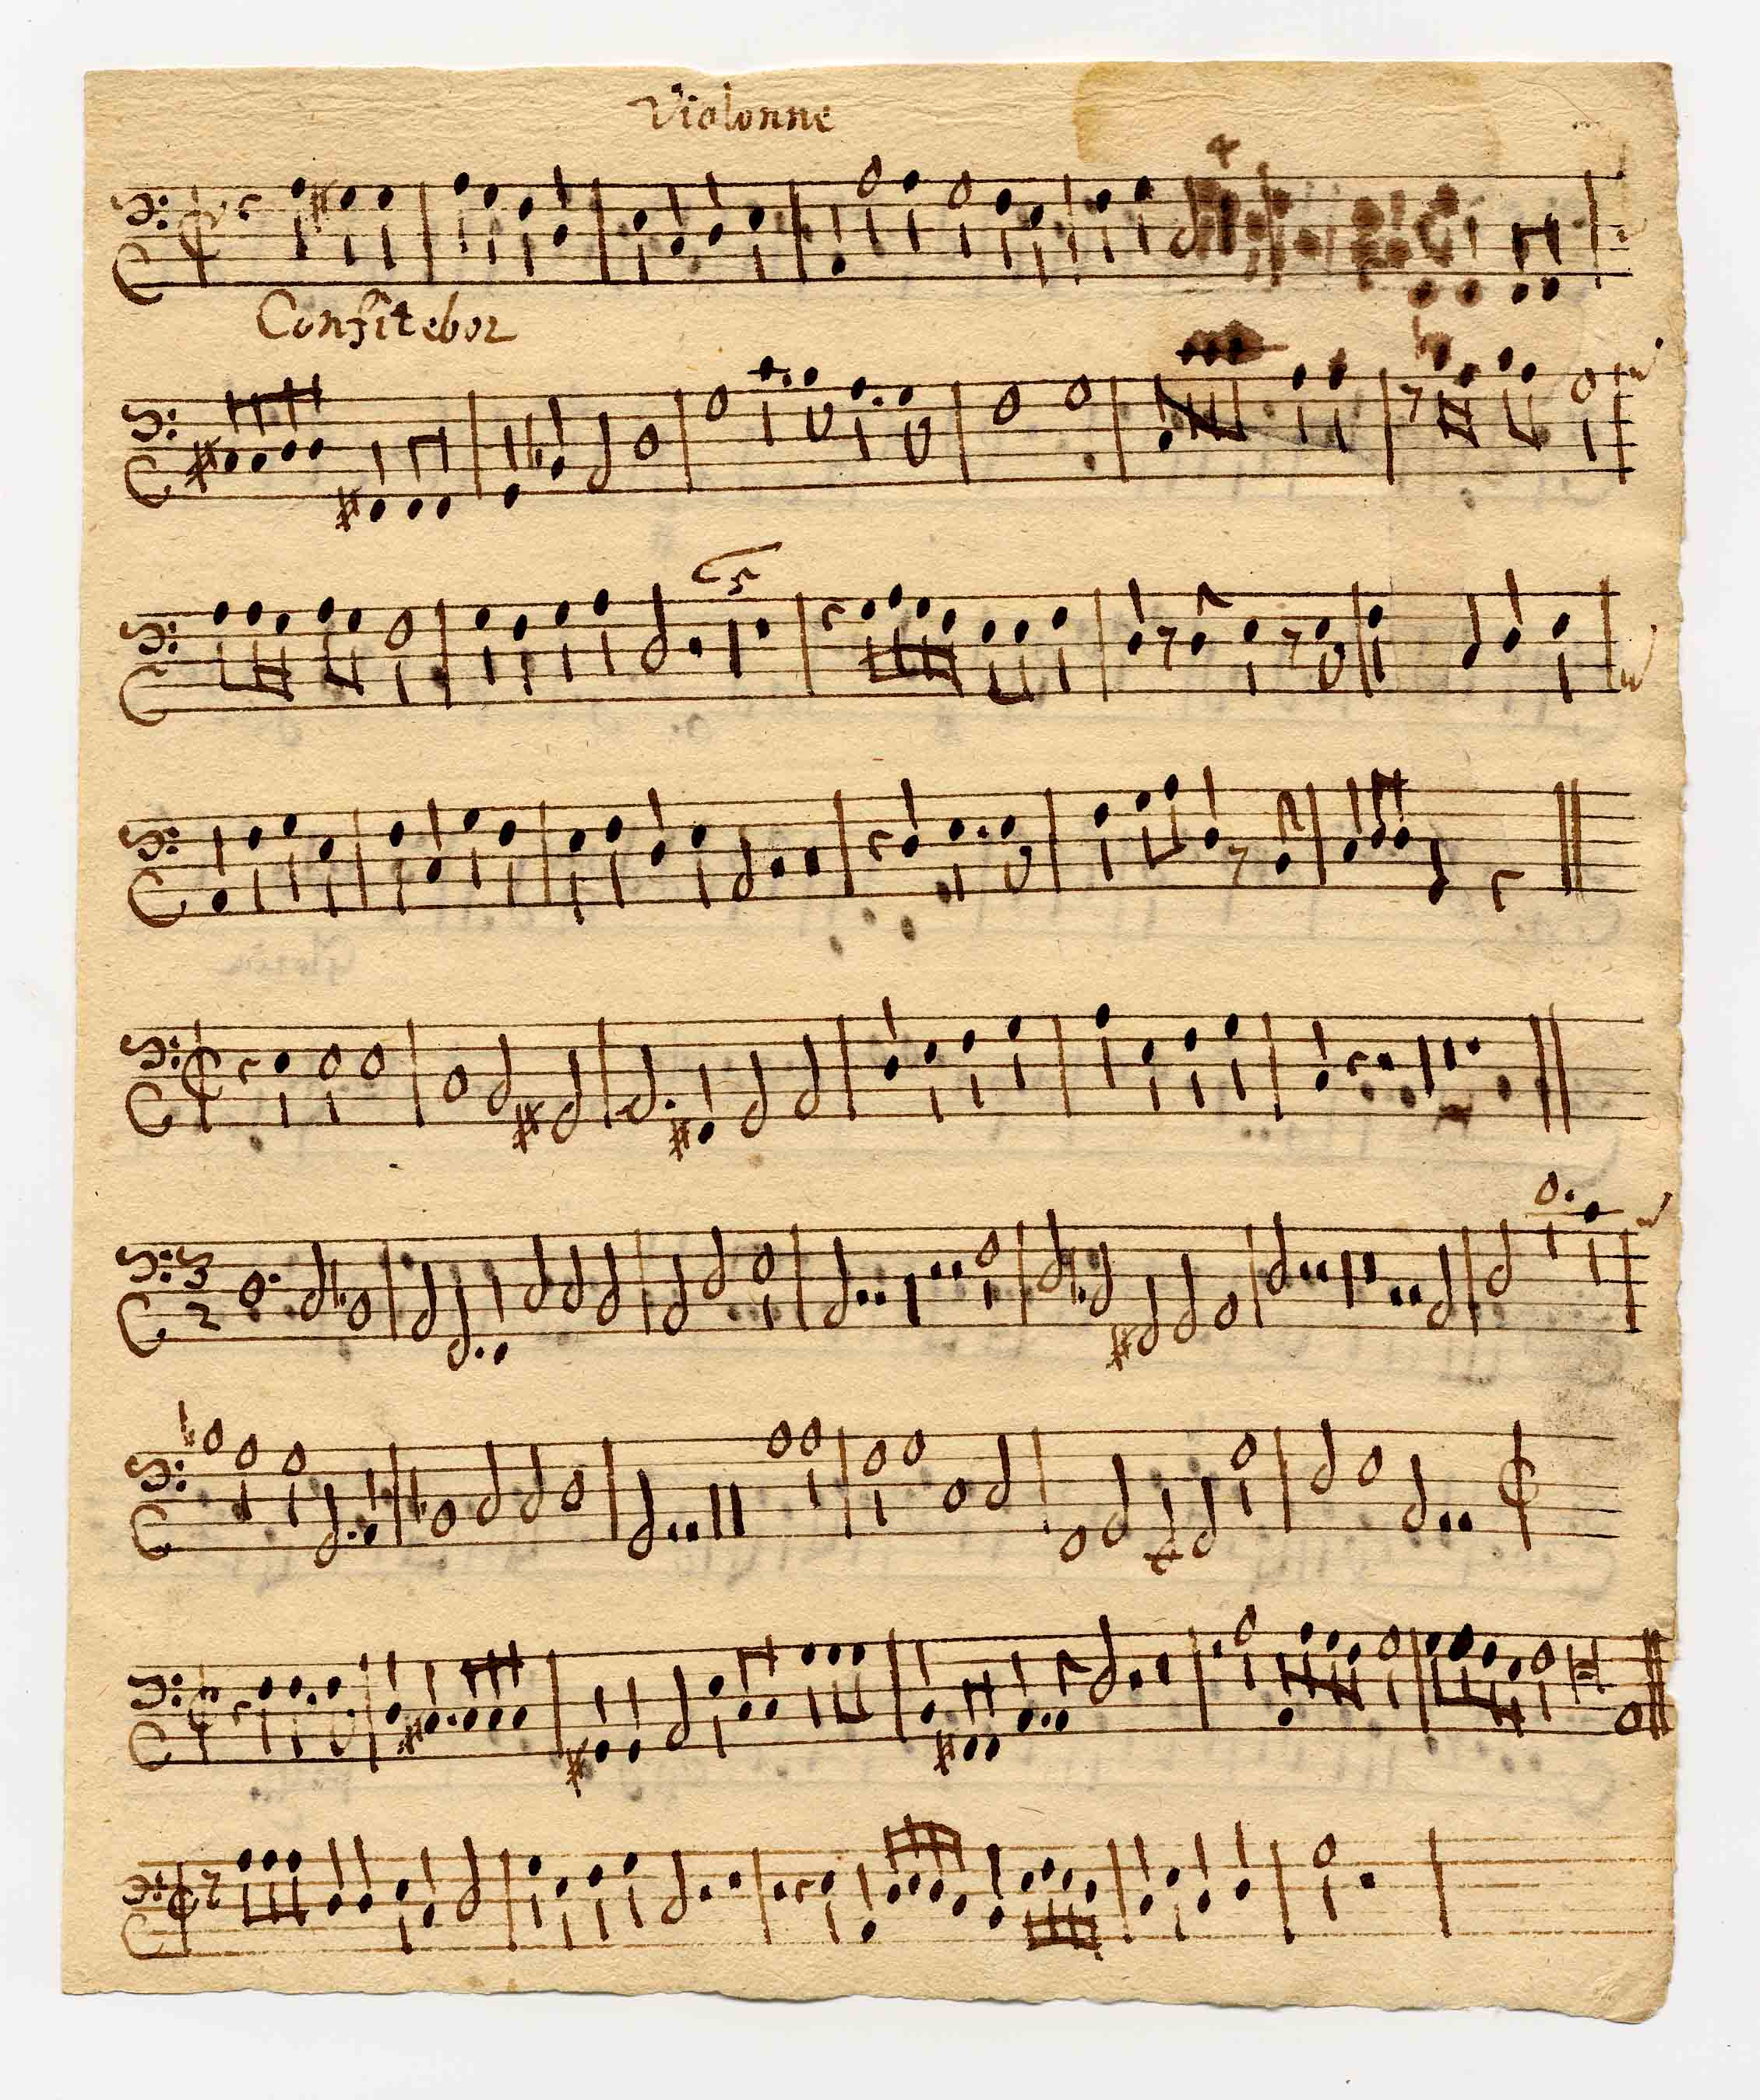 Violonne
Confitebor